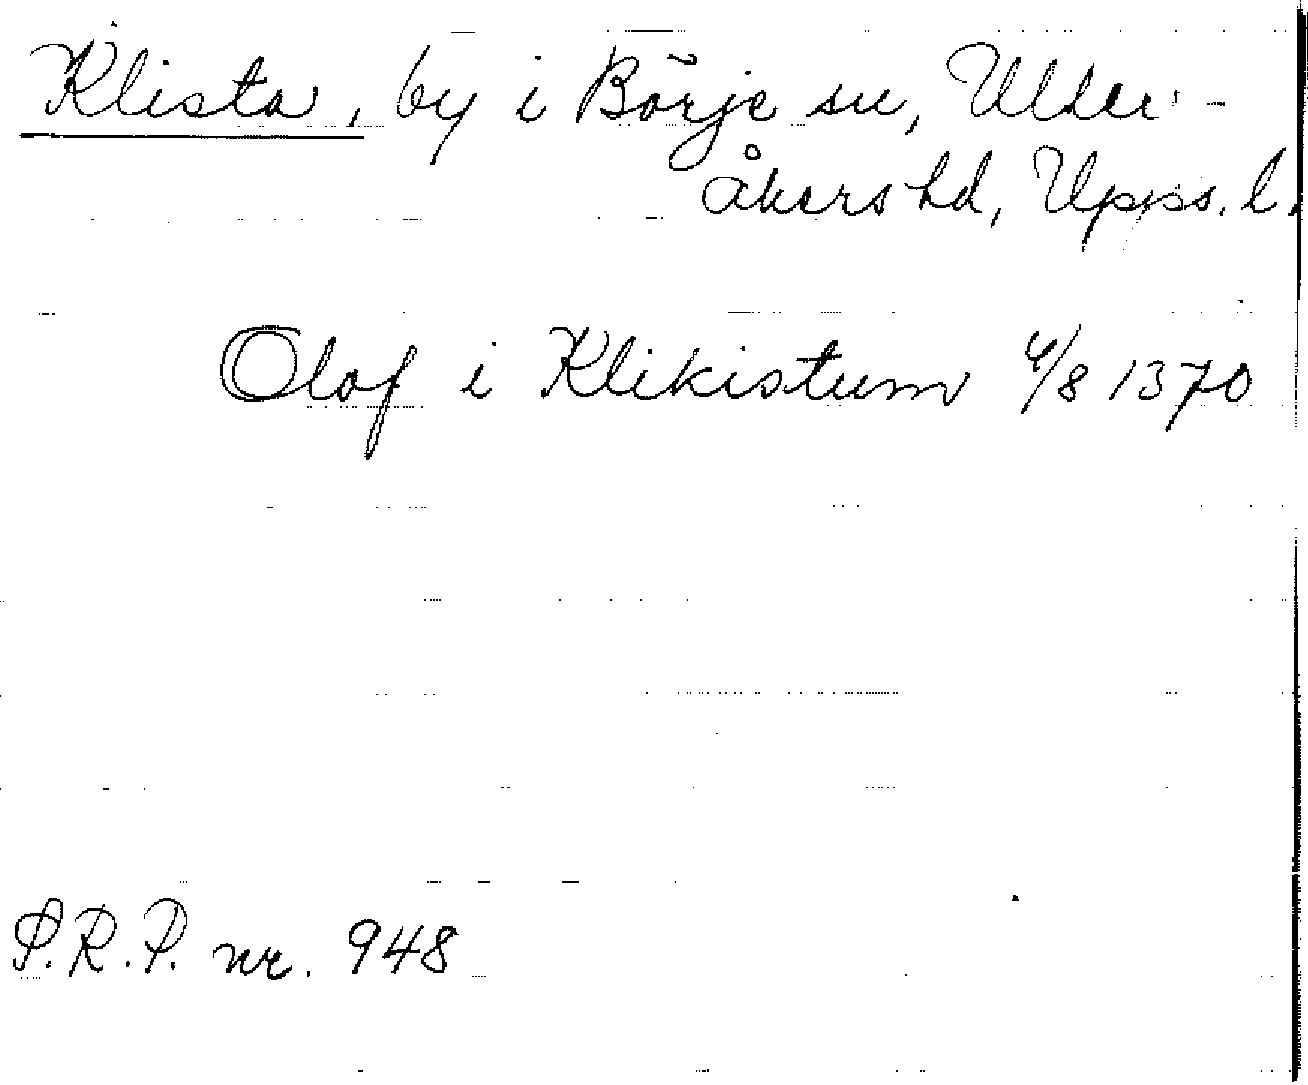 Klista, by i Börje sn, Uller-
åkers hd, Upps. l.
Olof i Klikistum 4/8 1370
S.R.P. nr. 948